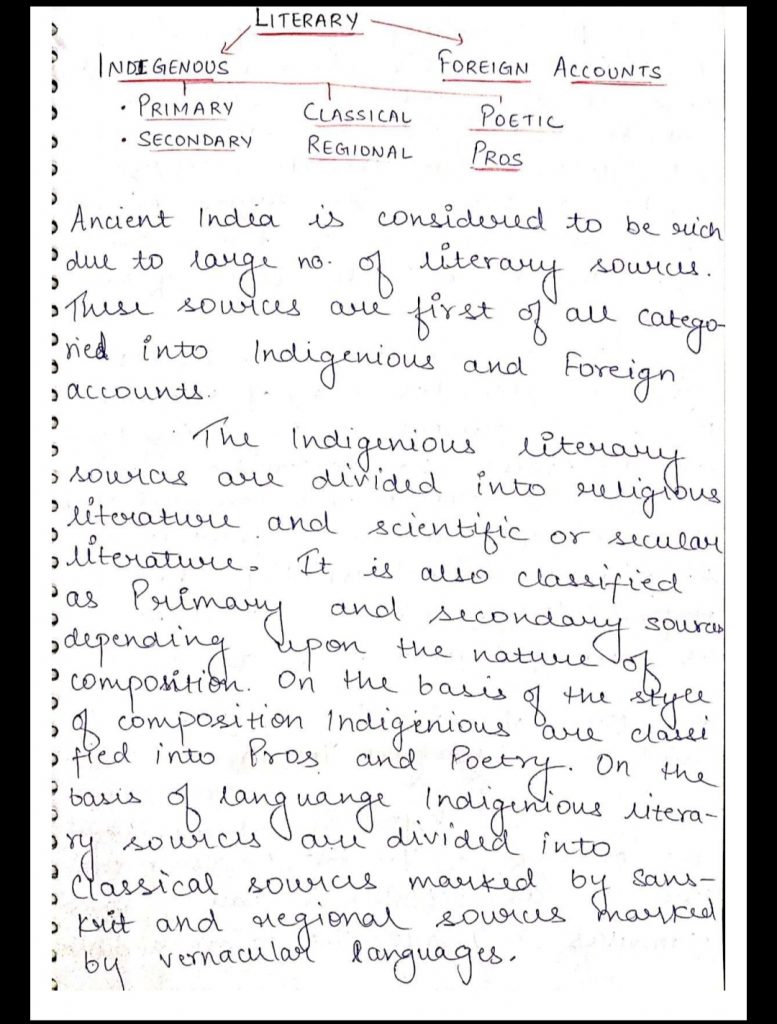 LITERARY
INDIGENOUS FOREIGN ACCOUNTS
• PRIMARY CLASSICAL POETIC
• SECONDARY REGIONAL PROS
Ancient India is considered to be rich
due to large no. of literary sources.
These sources are first of all catego-
ried into Indigenious and Foreign
accounts.
The Indigenious literary
sources are divided into religious
literature and scientific or secular
literature. It is also classified
as Primary and secondary sources
depending upon the nature of
composition. On the basis of the style
of composition Indigenious are classi
fied into Pros and Poetry. On the
basis of languange Indigenious litera-
ry sources are divided into
classical sources marked by Sans-
krit and regional sources marked
by vernacular languages.